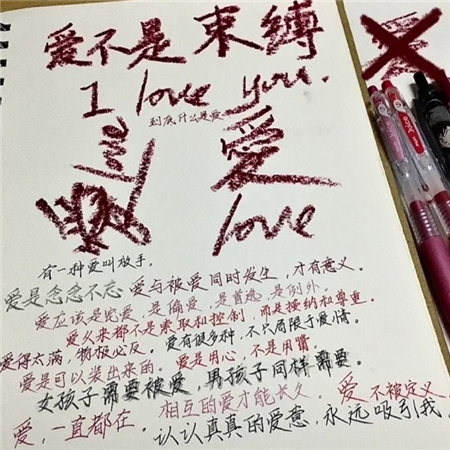 爱不是束缚
I love you.
到底什么是爱
love
爱
love
有一种爱叫放手。
爱是念念不忘
爱与被爱同时发生，才有意义。
爱应该是宠爱，是偏爱，是首选，是例外。
爱从来都不是索取和控制，而是接纳和尊重。
爱得太满，物极必反。
爱有很多种，不只局限于爱情。
爱是可以装出来的。
爱是用心，不是用嘴。
女孩子需要被爱，男孩子同样需要。
相互的爱才能长久。
爱不被定义。
爱，一直都在。
认认真真的爱意，永远吸引我。